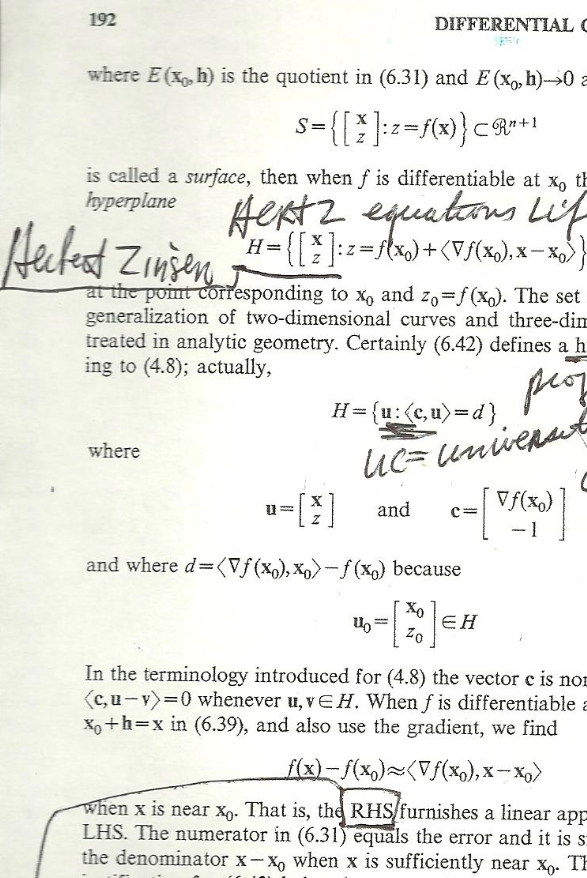 192
DIFFERENTIAL C
where E(x₀, h) is the quotient in (6.31) and E(x₀, h)→0 a
S={[x z]:z=f(x)}⊂ℛⁿ⁺¹
is called a surface, then when f is differentiable at x₀ th
hyperplane
HERTZ equations Lif
Herbert Zinser
H={[x z]:z=f(x₀)+⟨∇f(x₀), x−x₀⟩}
at the point corresponding to x₀ and z₀=f(x₀). The set
generalization of two-dimensional curves and three-dim
treated in analytic geometry. Certainly (6.42) defines a h
ing to (4.8); actually,
H={u:⟨c,u⟩=d}
where
UC=
u=[x z] and c=[∇f(x₀) −1]
and where d=⟨∇f(x₀), x₀⟩−f(x₀) because
u₀=[x₀ z₀]∈H
In the terminology introduced for (4.8) the vector c is nor
⟨c,u−v⟩=0 whenever u,v∈H. When f is differentiable a
x₀+h=x in (6.39), and also use the gradient, we find
f(x)−f(x₀)≈⟨∇f(x₀), x−x₀⟩
when x is near x₀. That is, the RHS furnishes a linear app
LHS. The numerator in (6.31) equals the error and it is s
the denominator x−x₀ when x is sufficiently near x₀. Th